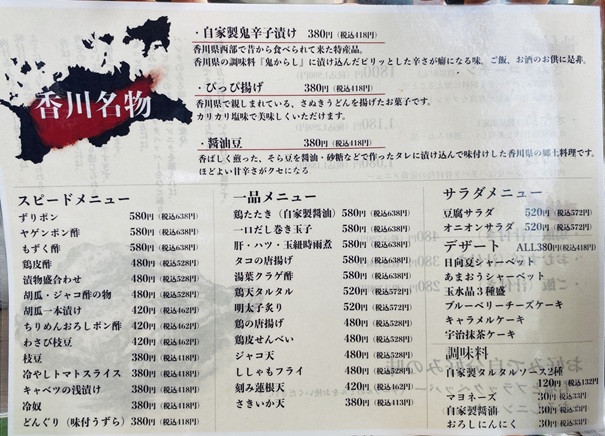 香川名物
・自家製鬼辛子漬け 380円（税込418円）
香川県西部で昔から食べられて来た特産品。
香川県の調味料『鬼からし』に漬け込んだピリッとした辛さが癖になる味。ご飯、お酒のお供に是非。
・ぴっぴ揚げ 380円（税込418円）
香川県で親しまれている、さぬきうどんを揚げたお菓子です。
カリカリ塩味で美味しくいただけます。
・醤油豆 380円（税込418円）
香ばしく煎った、そら豆を醤油・砂糖などで作ったタレに漬け込んで味付けした香川県の郷土料理です。
ほどよい甘辛さがクセになる
スピードメニュー
ずりポン 580円（税込638円）
ヤゲンポン酢 580円（税込638円）
もずく酢 580円（税込638円）
鶏皮酢 480円（税込528円）
漬物盛合わせ 480円（税込528円）
胡瓜・ジャコ酢の物 480円（税込528円）
胡瓜一本漬け 420円（税込462円）
ちりめんおろしポン酢 420円（税込462円）
わさび枝豆 420円（税込462円）
枝豆 380円（税込418円）
冷やしトマトスライス 380円（税込418円）
キャベツの浅漬け 380円（税込418円）
冷奴 380円（税込418円）
どんぐり（味付うずら） 380円（税込418円）
一品メニュー
鶏たたき（自家製醤油） 580円（税込638円）
一口だし巻き玉子 580円（税込638円）
肝・ハツ・玉紐時雨煮 580円（税込638円）
タコの唐揚げ 580円（税込638円）
湯葉クラゲ酢 580円（税込638円）
鶏天タルタル 520円（税込572円）
明太子炙り 520円（税込572円）
鶏の唐揚げ 480円（税込528円）
鶏皮せんべい 480円（税込528円）
ジャコ天 480円（税込528円）
ししゃもフライ 480円（税込528円）
刻み蓮根天 420円（税込462円）
さきいか天 380円（税込413円）
サラダメニュー
豆腐サラダ 520円（税込572円）
オニオンサラダ 520円（税込572円）
デザート ALL380円（税込418円）
日向夏シャーベット
あまおうシャーベット
玉水晶３種盛
ブルーベリーチーズケーキ
キャラメルケーキ
宇治抹茶ケーキ
調味料
自家製タルタルソース2種
120円（税込132円）
マヨネーズ 30円（税込33円）
自家製醤油 30円（税込33円）
おろしにんにく 30円（税込33円）